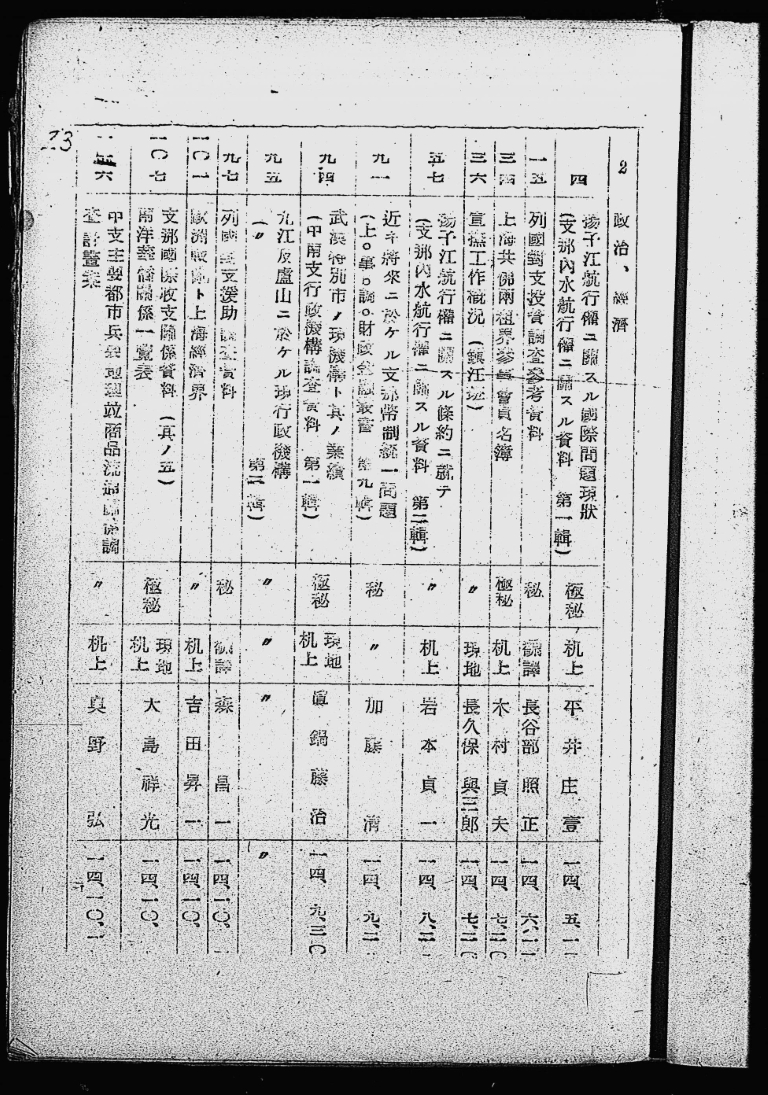 2 政治、經濟
四
揚子江航行權ニ關スル國際問題現狀
(支那內水航行權ニ關スル資料 第一輯)
極秘
机上
平井庄壹
一四、五、一
一五
列國對支投資調查參考資料
秘
飜譯
長谷部照正
一四、六、二一
三四
上海共佛兩租界參事會員名簿
極秘
机上
木村貞夫
一四、七、二〇
三六
宣撫工作概況(鎭江迄)
〃
現地
長久保與三郎
一四、七、二〇
五七
揚子江航行權ニ關スル條約ニ就テ
(支那內水航行權ニ關スル資料 第二輯)
〃
机上
岩本貞一
一四、八、二
九一
近キ將來ニ於ケル支那幣制統一問題
(上〇事〇調〇財政金融叢書 第九輯)
秘
〃
加藤 清
一四、九、二
九四
武漢特別市ノ現機構ト其ノ業績
(中南支行政機構調查資料 第一輯)
極秘
現地
机上
眞鍋藤治
一四、九、三〇
九五
九江及盧山ニ於ケル現行政機構
(〃 第二輯)
〃
〃
〃
〃
九七
列國對支援助調查資料
秘
飜譯
森 昌一
一四、一〇、
一〇一
歐洲戰亂ト上海經濟界
〃
机上
吉田昇一
一四、一〇、
一〇七
支那國際收支關係資料(其ノ五)
南洋華僑關係一覽表
極秘
現地
机上
大島祥光
一四、一〇、
六
中支主要都市兵要地理竝商品流通關係調
查計畫案
〃
机上
眞野 弘
一四、一〇、一
23